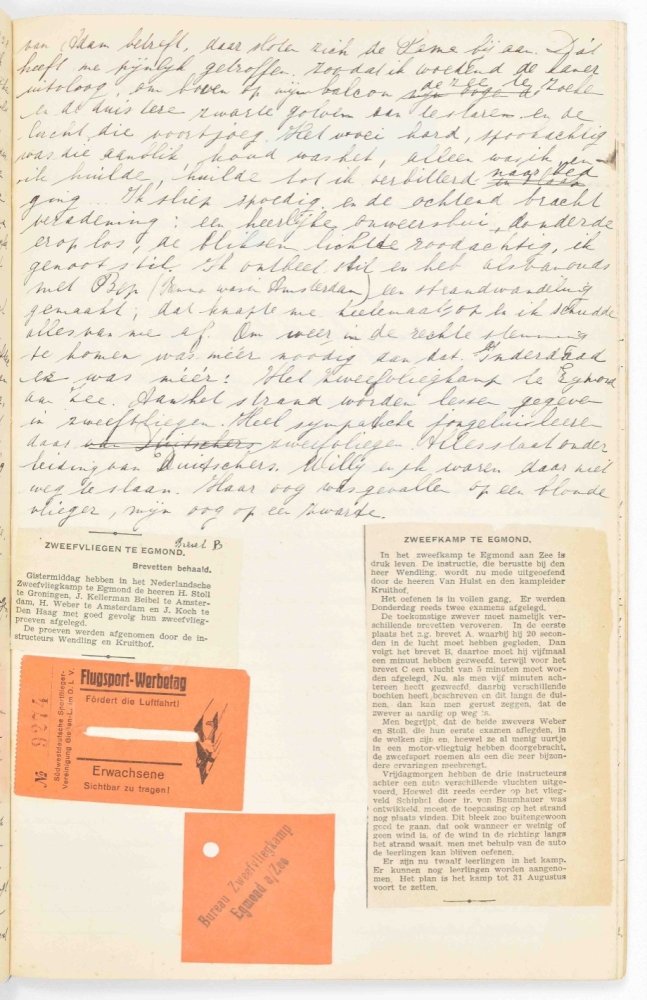 van Adam betreft, daar sloten zich de Dame bij aan. Dat
heeft me pijnlijk getroffen. zoodat ik woedend de kamer
uitvloog, om boven op mijn balcon de zee te zoeken
en de duistere zwarte golven aan te staren en de
lucht die voortjoeg. Het woei hard, spookachtig
was die aanblik, koud was het, alleen was ik en
ik huilde, huilde tot ik verbitterd naar bed
ging. Ik sliep spoedig en de ochtend bracht
verademing: een heerlijke onweersbui, donderde
erop los, de bliksem lichtte roodachtig, ik
genoot stil. Ik ontbeet stil en heb alsvanouds
met Bep (Hanno was in Amsterdam) een strandwandeling
gemaakt; dat knapte me heelemaal op en ik schudde
alles van me af. Om weer in de rechte stemming
te komen was méér noodig dan dat. Inderdaad
er was méér: Het zweefvliegkamp te Egmond
aan Zee. Aan het strand worden lessen gegeven
in zweefvliegen. Heel sympathieke jongelui leeren
daar van Duitschers zweefvliegen. Alles staat onder
leiding van Duitschers. Willy en ik waren daar niet
weg te slaan. Haar oog was gevallen op een blonde
vlieger, mijn oog op een zwarte.
ZWEEFVLIEGEN TE EGMOND.
Brevet B
Brevetten behaald.
Gistermiddag hebben in het Nederlandsche
Zweefvliegkamp te Egmond de heeren H. Stoll
te Groningen, J. Kellerman Beibel te Amster-
dam, H. Weber te Amsterdam en J. Koch te
Den Haag met goed gevolg hun zweefvlieg-
proeven afgelegd.
De proeven werden afgenomen door de in-
structeurs Wendling en Kruithof.
№ 9274
Südwestdeutsche Sportflieger-
Vereinigung Gießen-L. im D. L. V.
Flugsport-Werbetag
Fördert die Luftfahrt!
Erwachsene
Sichtbar zu tragen!
Bureau Zweefvliegkamp
Egmond a/Zee
ZWEEFKAMP TE EGMOND.
In het zweefkamp te Egmond aan Zee is
druk leven. De instructie, die berustte bij den
heer Wendling, wordt nu mede uitgeoefend
door de heeren Van Hulst en den kampleider
Kruithof.
Het oefenen is in vollen gang. Er werden
Donderdag reeds twee examens afgelegd.
De toekomstige zwever moet namelijk ver-
schillende brevetten veroveren. In de eerste
plaats het z.g. brevet A, waarbij hij 20 secon-
den in de lucht moet hebben gegleden. Dan
volgt het brevet B, daartoe moet hij vijfmaal
een minuut hebben gezweefd, terwijl voor het
brevet C een vlucht van 5 minuten moet wor-
den afgelegd. Nu, als men vijf minuten ach-
tereen heeft gezweefd, daarbij verschillende
bochten heeft beschreven en dit langs de dui-
nen, dan kan men gerust zeggen, dat de
zwever al aardig op weg is.
Men begrijpt, dat de beide zwevers Weber
en Stoll, die hun eerste examen aflegden, in
de wolken zijn en, hoewel ze al menig uurtje
in een motor-vliegtuig hebben doorgebracht,
de zweefsport roemen als een die zeer bijzon-
dere ervaringen meebrengt.
Vrijdagmorgen hebben de drie instructeurs
achter een auto verschillende vluchten uitge-
voerd. Hoewel dit reeds eerder op het vlieg-
veld Schiphol door ir. von Baumhauer was
ontwikkeld, moest de toepassing op het strand
nog plaats vinden. Dit bleek zoo buitengewoon
goed te gaan, dat ook wanneer er weinig of
geen wind is, of de wind in de richting langs
het strand waait, men met behulp van de auto
de leerlingen kan blijven oefenen.
Er zijn nu twaalf leerlingen in het kamp.
Er kunnen nog leerlingen worden aangeno-
men. Het plan is het kamp tot 31 Augustus
voort te zetten.